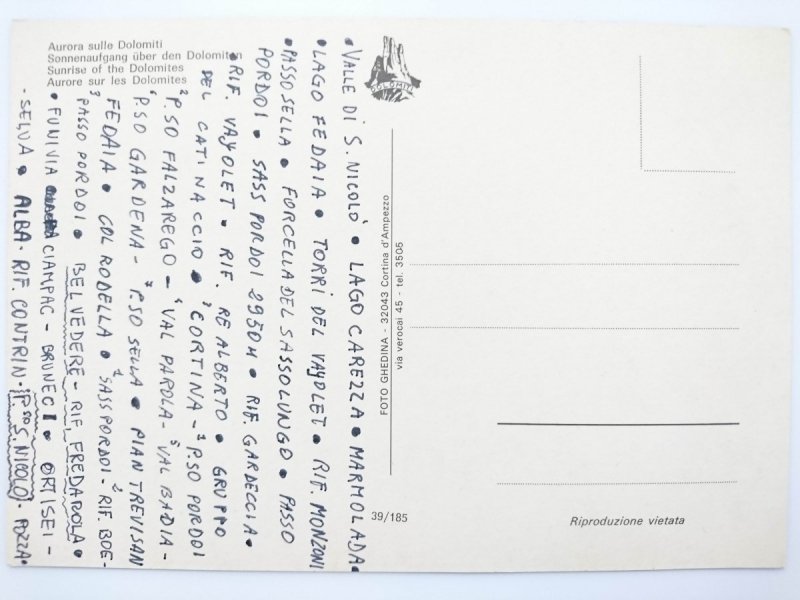 Aurora sulle Dolomiti
Sonnenaufgang über den Dolomiten
Sunrise of the Dolomites
Aurore sur les Dolomites
DOLOMITI
• VALLE DI S. NICOLO' • LAGO CAREZZA • MARMOLADA •
• LAGO FEDAIA • TORRI DEL VAYOLET • RIF. MONZONI
• PASSO SELLA • FORCELLA DEL SASSOLUNGO • PASSO
PORDOI • SASS PORDOI 2950 M • RIF. GARDECCIA •
• RIF. VAYOLET • RIF. RE ALBERTO • GRUPPO
DEL CATINACCIO • ³CORTINA - ¹P.SO PORDOI
²P.SO FALZAREGO - ⁴VAL PAROLA - ⁵VAL BADIA -
⁶P.SO GARDENA - ⁷P.SO SELLA • PIAN TREVISAN
FEDAIA • COL RODELLA • ¹SASS PORDOI - ²RIF. BOE -
³PASSO PORDOI • BELVEDERE - RIF. FREDAROLA •
• FUNIVIA CIAMPAC - BRUNECI • ORTISEI -
- SELVA • ALBA - RIF. CONTRIN - P.SSO S. NICOLO' - POZZA •
FOTO GHEDINA - 32043 Cortina d'Ampezzo
via verocai 45 - tel. 3505
39/185
Riproduzione vietata